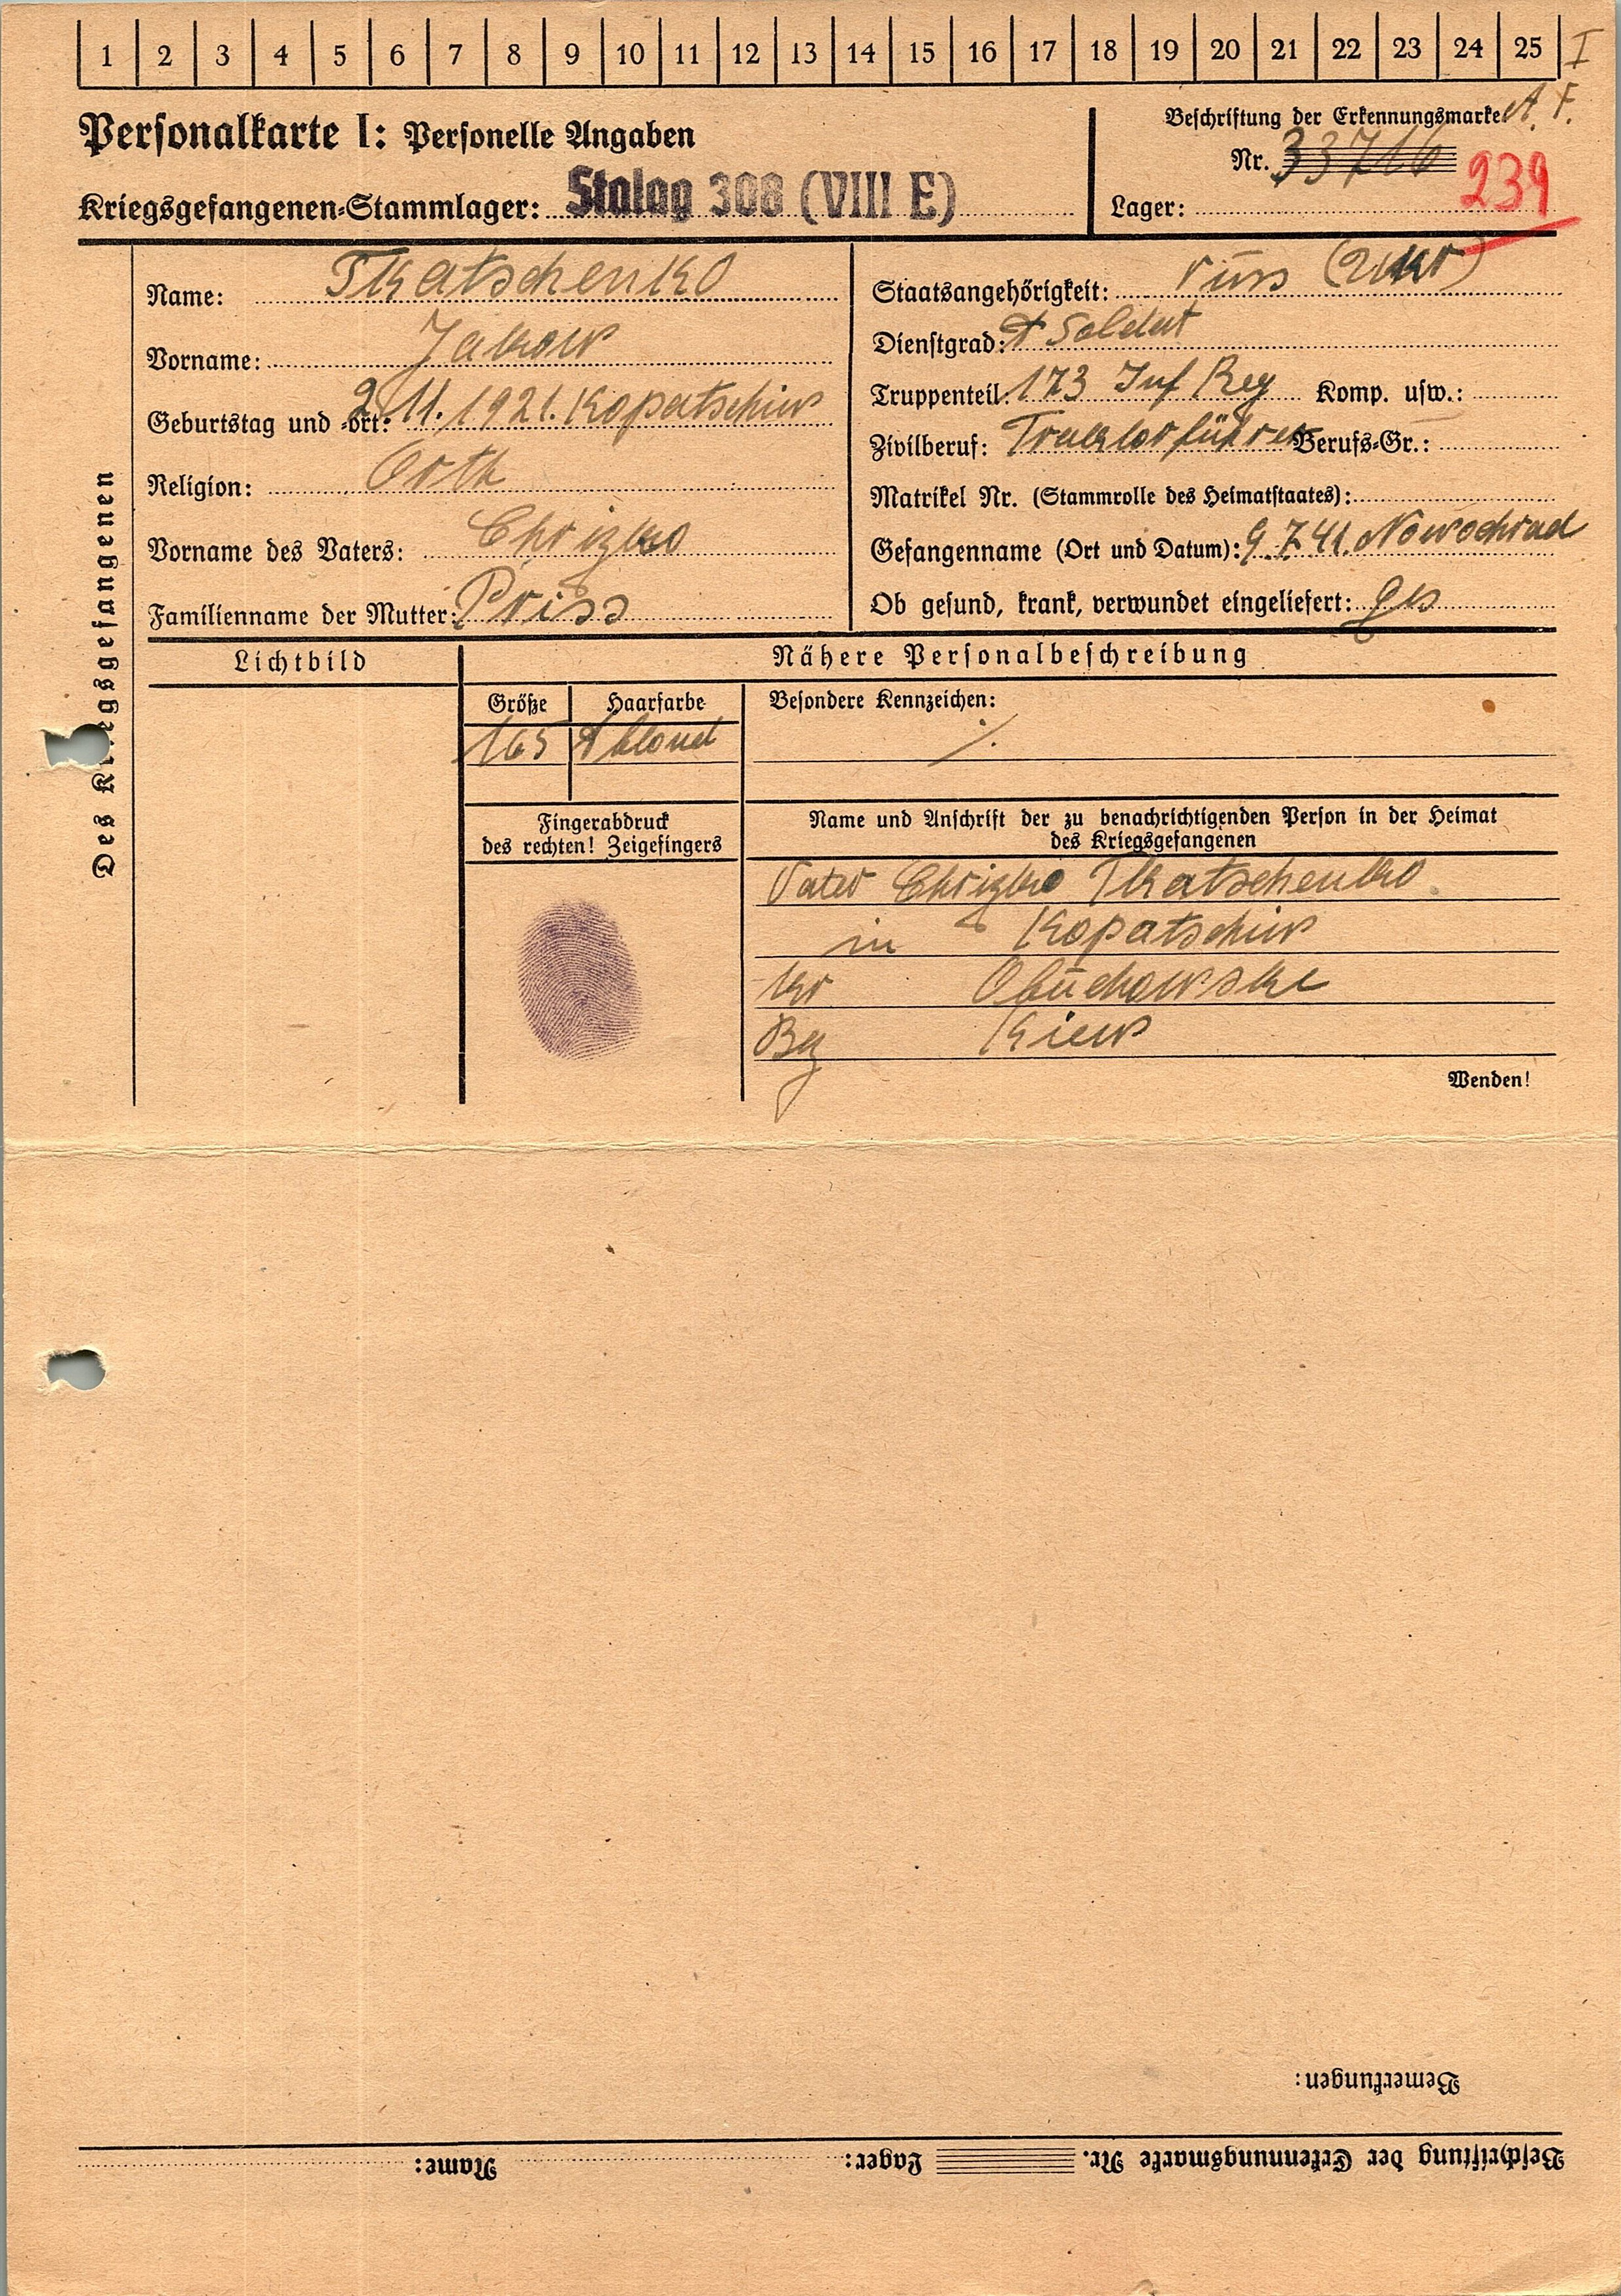 1 2 3 4 5 6 7 8 9 10 11 12 13 14 15 16 17 18 19 20 21 22 23 24 25 I
Personalkarte I: Personelle Angaben
Kriegsgefangenen-Stammlager: Stalag 308 (VIII E)
Beschriftung der Erkennungsmarke
Nr. 33716
239
Lager:
Des Kriegsgefangenen
Name: Tkatschenko
Vorname: Jakow
Geburtstag und -ort: 2.11.1921. Kopatschiw
Religion: Orth
Vorname des Vaters: Chrizko
Familienname der Mutter: Priss
Staatsangehörigkeit: russ (Ukr)
Dienstgrad: Soldat
Truppenteil: 173 Inf Reg Komp. usw.:
Zivilberuf: Traktorführer Berufs-Gr.:
Matrikel Nr. (Stammrolle des Heimatstaates):
Gefangenname (Ort und Datum): 9.7.41. Nowochrad
Ob gesund, krank, verwundet eingeliefert: ges
Lichtbild
Nähere Personalbeschreibung
Größe Haarfarbe Besondere Kennzeichen:
165 blond ./.
Fingerabdruck
des rechten! Zeigefingers
Name und Anschrift der zu benachrichtigenden Person in der Heimat
des Kriegsgefangenen
Vater Chrizko Tkatschenko
in Kopatschiw
Kr Obuchowske
Bez Kiew
Wenden!
Bemerkungen:
Beschriftung der Erkennungsmarke Nr. Lager: Name: